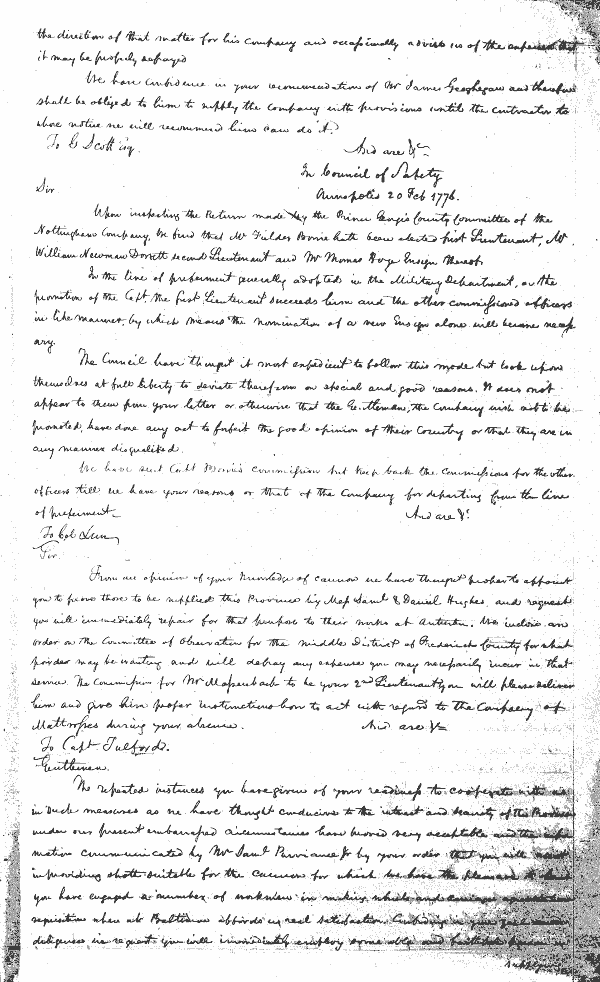 the direction of that matter for his company and occasionally advise us of the expence that
it may be properly defrayed
We have confidence in your recommendation of Mr James Geoghegan and therefore
shall be obliged to him to supply the Company with provisions until the contractor to
whose notice we will recommend him can do it.
To G Scott Esq. And are &c
In Council of Safety
Annapolis 20 Feb 1776.
Sir
Upon inspecting the Return made by the Prince Georges County Committee of the
Nottingham Company, We find that Mr Fielder Bowie hath been elected first Lieutenant, Mr
William Newman Dorsett second Lieutenant and Mr Thomas Boyd Ensign thereof.
In the line of preferment generally adopted in the Military Department, on the
promotion of the Capt. the first Lieutenant succeeds him and the other commissioned officers
in like manner, by which means the nomination of a new Ensign alone will become necess
ary.
The Council have thought it most expedient to follow this mode but look upon
themselves at full liberty to deviate therefrom on special and good reasons. It does not
appear to them from your letter or otherwise that the Gentlemen, the Company wish not to be
promoted, have done any act to forfeit the good opinion of their Country or that they are in
any manner disqualified.
We have sent Capt commission but keep back the Commissions for the other
officers till we have your reasons or that of the Company for departing from the line
of preferment And are &c.
To Col
Sir.
From an opinion of your knowledge of cannon we have thought proper to appoint
you to prove those to be supplied this Province by Mess Saml & Daniel Hughes, and request
you will immediately repair for that purpose to their works at Antietam. We inclose an
order on the Committee of Observation for the middle District of Frederick County for what
powder may be wanting and will defray any expense you may necessarily incur in that
service. The Commission for Mr Massenbach to be your 2nd Lieutenant you will please deliver
him and give him proper instructions how to act with regard to the Company of
Mattrosses during your absence. And are &c
To Capt Fulford.
Gentlemen.
The repeated instances you have given of your readiness to cooperate with us
in such measures as we have thought conducive to the interest and security of the Province
under our present embarrassed circumstances have proved very acceptable and the infor
mation communicated by Mr Saml Purviance Jr by your order that you will assist
in providing shott suitable for the Cannon for which
you have engaged a number of workmen in making wheels and carriages
requisition when at Baltimore affords us real satisfaction.
diligence we request you will immediately employ some able and faithful